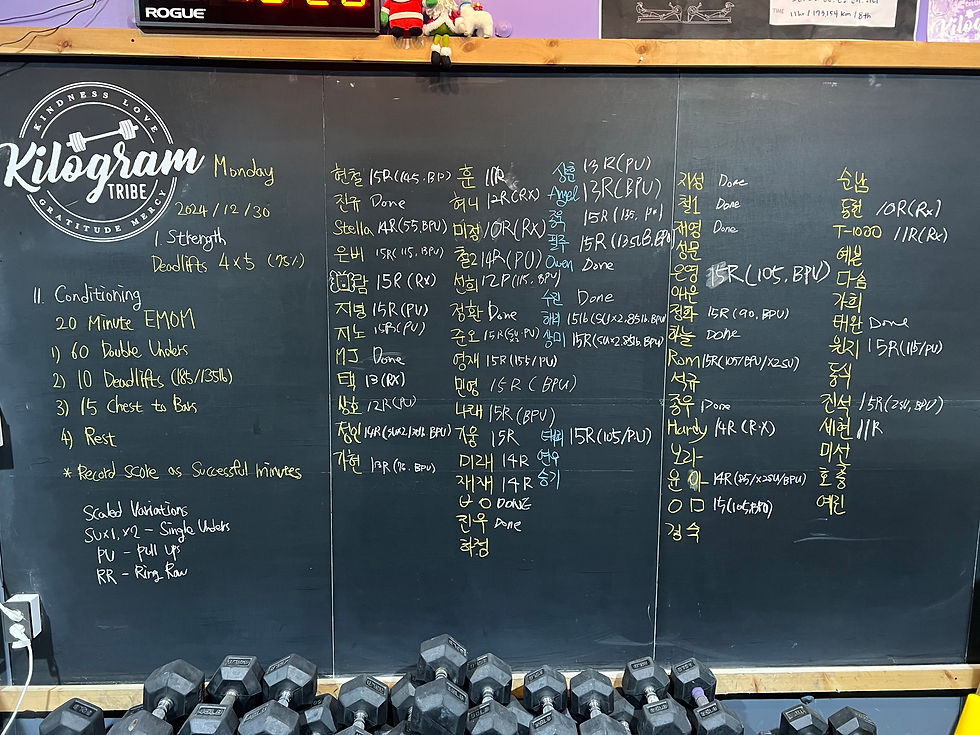 ROGUE
TIME
KINDNESS LOVE
Kilogram
TRIBE
GRATITUDE MERCY
Monday
2024/12/30
I. Strength
Deadlifts 4x5 (75%)
II. Conditioning
20 Minute EMOM
1) 60 Double Unders
2) 10 Deadlifts (185/135lb)
3) 15 Chest to Bars
4) Rest
* Record score as Successful minutes
Scaled Variations
SUx1, x2 - Single Unders
PU - Pull Ups
RR - Ring Row
현철 15R(145, BP)
진유 Done
Stella 14R(55, BPU)
은비 15R(115, BPU)
람 15R (Rx)
지녕 15R(PU)
지노 15R(PU)
MJ Done
택 13(RX)
상호 12R(PU)
정인
가현
훈 11R
허니 12R(RX)
미정 10R(RX)
철2 14R(PU)
선희 12R(115, BPU)
정환 Done
준오 15R(SU, PU)
영재 15R(155/PU)
민영 15R (BPU)
나래 15R(BPU)
지웅 15R
미래 14R
재재 14R
DONE
진우 Done
희정
상훈 13R(PU)
Angel 13R(BPU)
15R (135, PU)
필주 15R (135LB, BPU)
Owen Done
수린 Done
해리
상미 15R(SUx2, 85lb, BPU)
태희 15R(105/PU)
여우
승기
지성 Done
철1 Done
재영 Done
성문
은영 15R(105, BPU)
아운
전화 15R(90, BPU)
하늘 Done
Rom 15R(105/BPU/x2SU)
석규
종우 Done
Hardy 14R (RX)
오라
윤아 14R(85/x2SU/BPU)
ㅇㅁ 15(105, BPU)
경숙
순남
동현 10R(Rx)
T-1000 11R(Rx)
예본
다솜
가희
태완 Done
원지 15R(115/PU)
동식
진석 15R(2SU, BPU)
세현 11R
미선
호중
예린